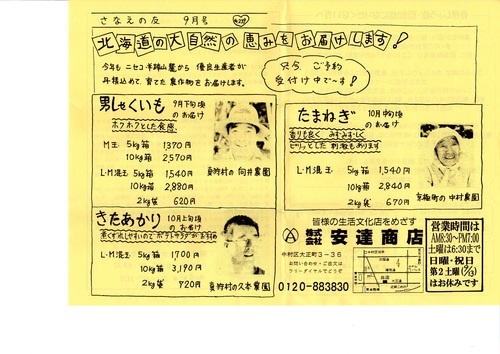 さなえの友 9月号
北海道の大自然の恵みをお届けします!
今年も ニセコ・羊蹄山麓から 優良生産者が
丹精込めて、育てた農作物をお届けします。
只今 ご予約
受付け中で〜す!
男しゃくいも 9月下旬頃
のお届け
ホクホクとした食感
M玉 5kg箱 1,370円
10kg箱 2,570円
L・M混玉 5kg箱 1,540円
10kg箱 2,880円
2kg袋 620円
真狩村の 向井農園
たまねぎ 10月中旬頃
のお届け
香りも良く みずみずしく
ピリッとした 刺激もあります
L・M混玉 5kg箱 1,540円
10kg箱 2,840円
2kg袋 670円
京極町の 中村農園
きたあかり 10月上旬頃
のお届け
煮くずれしやすいので ポテトサラダがおすすめ
L・M混玉 5kg箱 1700円
10kg箱 3,190円
2kg袋 720円
真狩村の久本農園
皆様の生活文化店をめざす
株式会社 安達商店
中村区大正町3-36
お問い合わせ・ご注文は
フリーダイヤルでどうぞ
0120-883830
営業時間は
AM8:30〜PM7:00
土曜は6:30まで
日曜・祝日
第2土曜
はお休みです